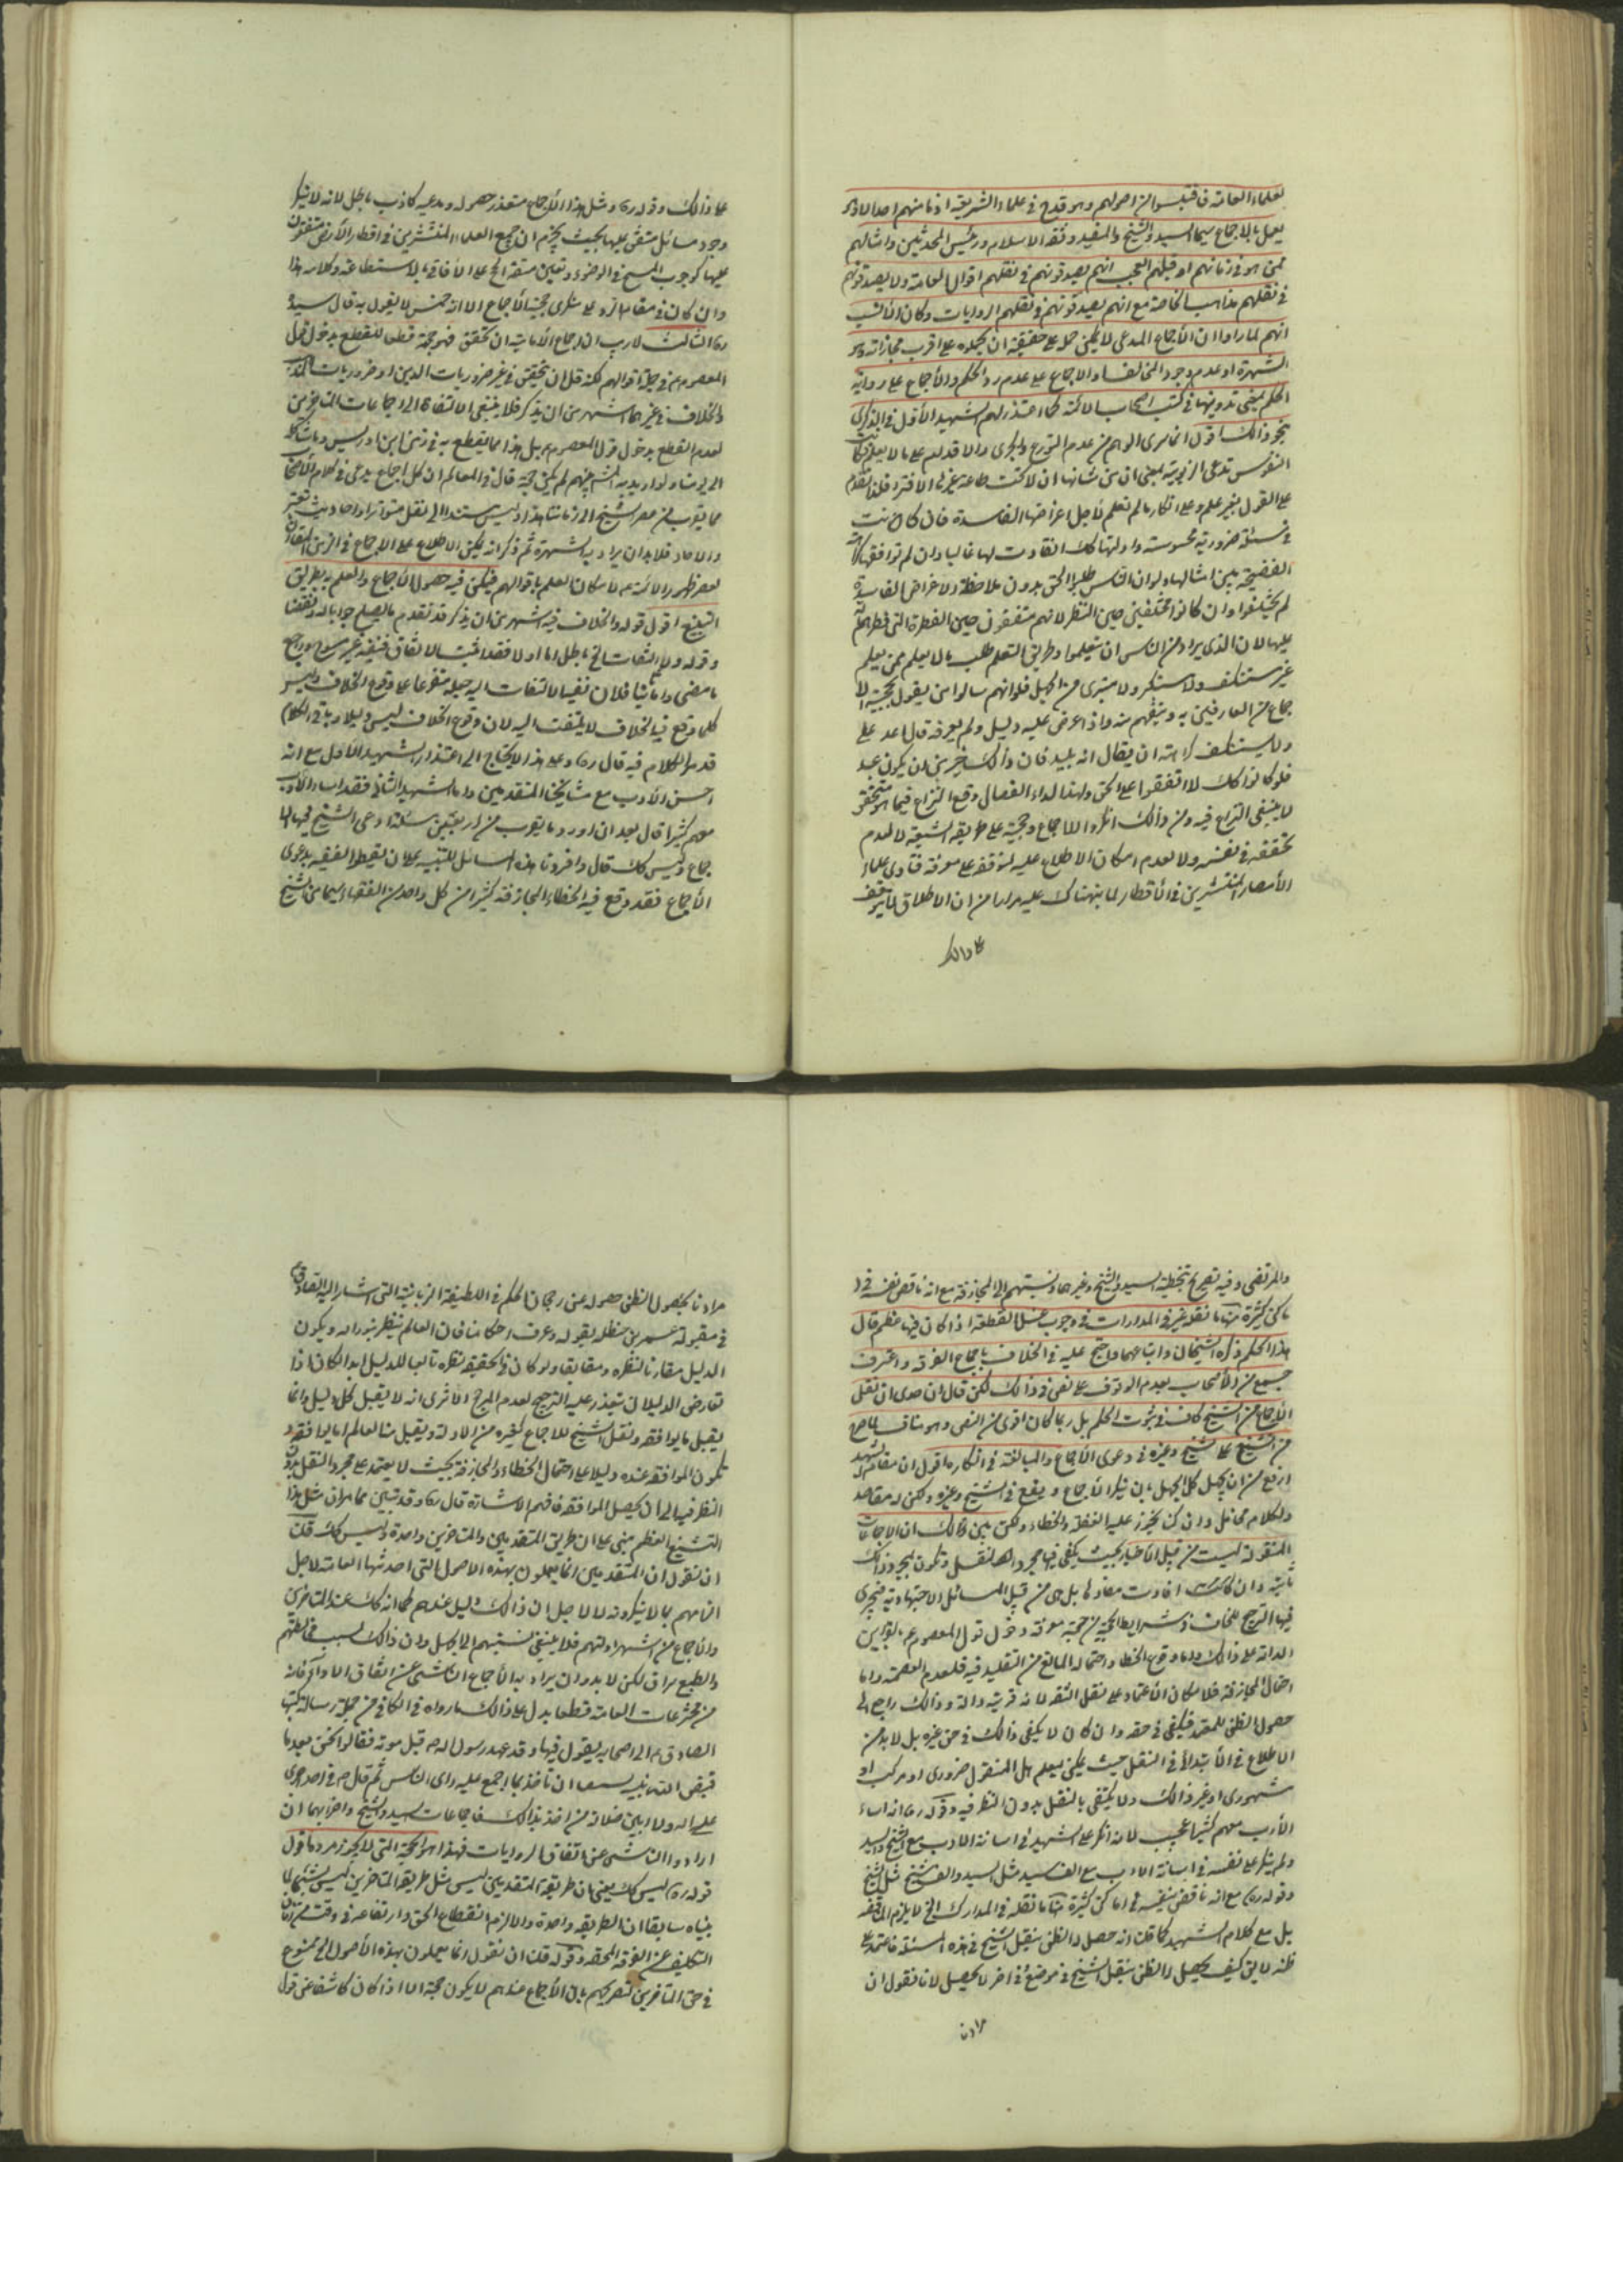 لعلماء العامة فاقتبسوا من اصولهم وهو قدح في علماء الشريعة اذ ما منهم احد الا وهو
يعمل بالاجماع سيما السيد والشيخ والمفيد وثقة الاسلام ورئيس المحدثين وامثالهم
ممن هو في زمانهم او قبلهم والعجب انهم يصدقونهم في نقلهم اقوال العامة ولا يصدقونهم
في نقلهم مذاهب الخاصة مع انهم يصدقونهم في نقلهم الروايات وكان الأنسب
انهم لما راوا ان الأجماع المدعى لا يمكن حمله على حقيقته ان يحملوه على اقرب مجازاته وهو
الشهرة او عدم وجود المخالف او الاجماع على عدم رد الحكم والأجماع على رواية
الحكم بمعنى تدوينها في كتب اصحاب الائمة كما اعتذر لهم الشهيد الأول في الذكرى
بنحو ذالك اقول انما سرى الوهم من عدم التورع والجرى والاقدام على ما لا يعلم فكانت
النفوس تدعى الربوبية بمعنى ان من شانها ان لا تحت طاعة غيرها الا قسرا فلذا تقدم
على القول بغير علم وعلى انكار ما لم تعلم لأجل اغراضها الفاسدة فان كانت
في مسئلة ضرورية محسوسة وادلتها كك انقادت لها غالبا وان لم توافقها
الفضيحة بين امثالها ولو ان الناس طلبوا الحق بدون ملاحظة الاغراض الفاسدة
لم يختلفوا وان كانوا مختلفين حين النظر لانهم متفقون حين الفطرة التي فطرهم الله
عليها لان الذي يراد من الناس ان يتعلموا وطريق التعلم طلب ما لا يعلم ممن يعلم
غير مستنكف ولا مستكبر ولا متبرى من الجهل فلو انهم سالوا من يقول بحجية الا
جماع من العارفين به وبينهم منه واذا عرض عليه دليل ولم يعرفه قال اعد علي
ولا يستنكف كراهة ان يقال انه بليد فان ذالك خير من ان يكون عبد
فلو كانوا كك لاتفقوا على الحق ولهذا الداء العضال وقع النزاع فيما هو متحقق
لا ينبغي النزاع فيه ومن ذالك انكروا الاجماع وحجيته على طريقة الشيعة لا لعدم
تحققه في نفسه ولا لعدم امكان الاطلاع عليه لتوقفه على معرفة فتاوى علماء
الأمصار المنتشرين في الأقطار لما نبهناك عليه مرارا من ان الاطلاق لا يتوقف
على ذالك
على ذالك وقوله ره ومثل هذا الأجماع متعذر حصوله ومدعيه كاذب باطل لانه لا ينكر
وجود مسائل متفق عليها بحيث يجزم ان جميع العلماء المنتشرين في اقطار الأرض متفقون
عليها كوجوب المسح في الوضوء وتعيين متعة الحج على الأفاقي بالاستطاعة وكلامه هذا
وان كان في مقام الرد على منكرى حجية الأجماع الا انه حسن لا يقول به قال سيده
ره الثالث لا ريب ان اجماع الأمامية ان تحقق فهو حجة قطعا للقطع بدخول قول
المعصوم ع في جملة اقوالهم لكنه قل ان يتحقق في غير ضروريات الدين او ضروريات المذهب
والخلاف في غيرهما اشهر من ان يذكر فلا ينبغي الالتفات الى اجماعات المتاخرين
لعدم القطع بدخول قول المعصوم ع بل هذا مما يقطع به في زمن ابن ادريس وما شاكله
الى يومنا ولو اريد به المشهور لم يكن حجة قال في المعالم ان كل اجماع يدعى في كلام الأصحاب
مما يقرب من عصر الشيخ الى زماننا هذا وليس مستندا الى نقل متواتر او احاديث تعتبر
والاحاد فلا بد ان يراد به الشهرة ثم ذكر انه يمكن الاطلاع على الاجماع في الزمن المقارب
لعصر ظهور الائمة ع لامكان العلم باقوالهم فيمكن فيه حصول الأجماع والعلم به بطريق
التتبع اقول قوله والخلاف فيه اشهر من ان يذكر قد تقدم ما يصلح جوابا له ونقضا
كلما وقع فيه الخلاف لا يلتفت اليه لان وقوع الخلاف ليس دليلا وباقي الكلام
قد مر الكلام فيه قال ره وعلى هذا لا يحتاج الى اعتذار الشهيد الأول مع انه
احسن الأدب مع مشايخنا المتقدمين واما الشهيد الثاني فقد اساء الأدب
معهم كثيرا قال بعد ان اورد ما يقرب من اربعين مسئلة ادعى الشيخ فيها الا
جماع وليس كك قال وافردنا هذه المسائل للتنبيه على ان لا يغتر الفقيه بدعوى
الأجماع فقد وقع فيه الخطاء والمجازفة كثيرا من كل واحد من الفقهاء سيما من الشيخ
والمرتضى وفيه تصريح بتخطئة السيد والشيخ وغيرهما ونسبتهم الى المجازفة مع انه ناقض نفسه في ا
ماكن كثيرة منها ما نقل عنه في المدارك في وجوب غسل القطعة اذا كان فيها عظم قال
هذا الحكم ذكره الشيخان واتباعهما واحتج عليه في الخلاف باجماع الفرقة واعترف
جميع من الأصحاب بعدم الوقوف على نص في ذالك لكن قال ان جدى ان نقل
الأجماع من الشيخ كاف في ثبوت الحكم بل ربما كان اقوى من النص وهو مناف لما صرح
من التشنيع على الشيخ وغيره في دعوى الأجماع والمبالغة في انكاره اقول ان مقام الشهيد
ارفع من ان يجهل كل الجهل بان ينكر الأجماع ويقع في الشيخ وغيره ولكن له مقاصد
ولكلام محامل وان كان يجوز عليه الغفلة والخطاء ولكن يبين ذالك ان الاجماعات
المنقولة ليست من قبيل الأخبار بحيث يكفي فيها مجرد النقل وتكون بمجرد ذالك
ثابتة وان كانت افادت مفادها بل هي من قبيل المسائل الاجتهادية فيجرى
فيها الترجيح للمخالف وشرايط الحجية من حجية معرفة دخول قول المعصوم ع بالقراين
الدالة على ذالك واما وقوع الخطا واحتماله المانع من التقليد فيه فلعدم العصمة واما
احتمال المجازفة فلامكان الأعتماد على نقل الثقة لانه قرينة دالة وذالك راجع الى
حصول الظن للمعتمد فيكفي في حقه وان كان لا يكفي ذالك في حق غيره بل لا بد من
الاطلاع في الأبتداء في النقل حيث يمكن ليعلم هل المنقول ضرورى او مركب او
مشهورى او غير ذالك ولا يكتفى بالنقل بدون النظر فيه وقوله ره انه اساء
الأدب معهم كثيرا عجيب لانه انكر على الشهيد في اسائة الادب مع الشيخ والسيد
ولم ينكر على نفسه في اسائة الادب مع الشهيد مثل السيد والشيخ
وقوله ره مع انه ناقض نفسه في اماكن كثيرة منها ما نقله في المدارك الخ لا يلزم المناقضة
بل مع كلام الشهيد كما قلنا انه حصل له الظن بنقل الشيخ في هذه المسئلة فاعتمد على
ظنه لا يق كيف يحصل له الظن بنقل الشيخ في موضع وفي اخر لا يحصل لانا نقول ان
مرادنا
مرادنا بحصول الظن حصوله عن رجحان الحكم في اللطيفة الربانية التي اشار اليها الصادق ع
في مقبولة عمر بن حنظلة بقوله وعرف احكامنا فان العالم ينظر بنور الله ويكون
الدليل مقارنا لنظره ومطابقا ولو كان في الحقيقة نظره تابعا للدليل ابدا لكان اذا
تعارض الدليلان يتعذر عليه الترجيح لعدم المرجح الأ ترى انه لا يقبل كل دليل وانما
يقبل ما يوافقه ونقل الشيخ للاجماع كغيره من الادلة ويقبل منه العالم ما يوافقه و
تكون الموافقة عنده دليلا على احتمال الخطاء والمجازفة بحيث لا يعتمد على مجرد النقل بدون
النظر فيه الى ان يحصل الموافقة فافهم الاشارة قال ره وقد تبين مما مر ان مثل هذا
التشنيع العظيم مبني على ان طريق المتقدمين والمتاخرين واحدة وليس كك قلت
ان نقول ان المتقدمين انما يعملون بهذه الاصول التي احدثها العامة لاجل
الزامهم بما لا ينكرونه لا لاجل ان ذالك دليل عندهم كما انه كك عند المتاخرين
والأجماع من اشهر ادلتهم فلا ينبغي نسبتهم الى الجهل وان ذالك لسبب مخالطتهم
والطبع سراق لكن لا بد وان يراد به الأجماع الناشى عن اتفاق الا واحد فانه
من مخترعات العامة قطعا يدل على ذالك ما رواه في الكافي من جملة رسالة كتبها
الصادق ع الى اصحابه يقول فيها وقد عهد رسول الله ص قبل موته فقالوا نحن بعد ما
قبض الله نبيه يسعنا ان ناخذ بما اجمع عليه راى الناس ثم قال ع فما احد اجرى
على الله ولا ابين ضلالة من اخذ بذالك فاجماعات السيد والشيخ واضرابهما ان
ارادوا الناشى عن اتفاق الروايات فهذا هو الحجة التي لا يجوز ردها قول
قوله ره ليس كك يعنى ان طريقة المتقدمين ليس مثل طريقة المتاخرين ليس بشئ لما
بيناه سابقا ان الطريقة واحدة والا لزم انقطاع الحق وارتفاعه في وقت من زمان
التكليف عن الفرقة المحقة وقوله قلت ان نقول انما يعملون بهذه الأصول الخ ممنوع
في حق المتاخرين لتصريحهم بان الأجماع عندهم لا يكون حجة الا اذا كان كاشفا عن قول